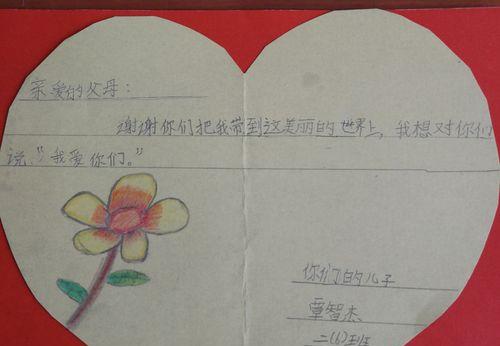 亲爱的父母：
谢谢你们把我带到这美丽的世界上，我想对你们
说：“我爱你们。”
你们的儿子
覃智杰
二(6)班